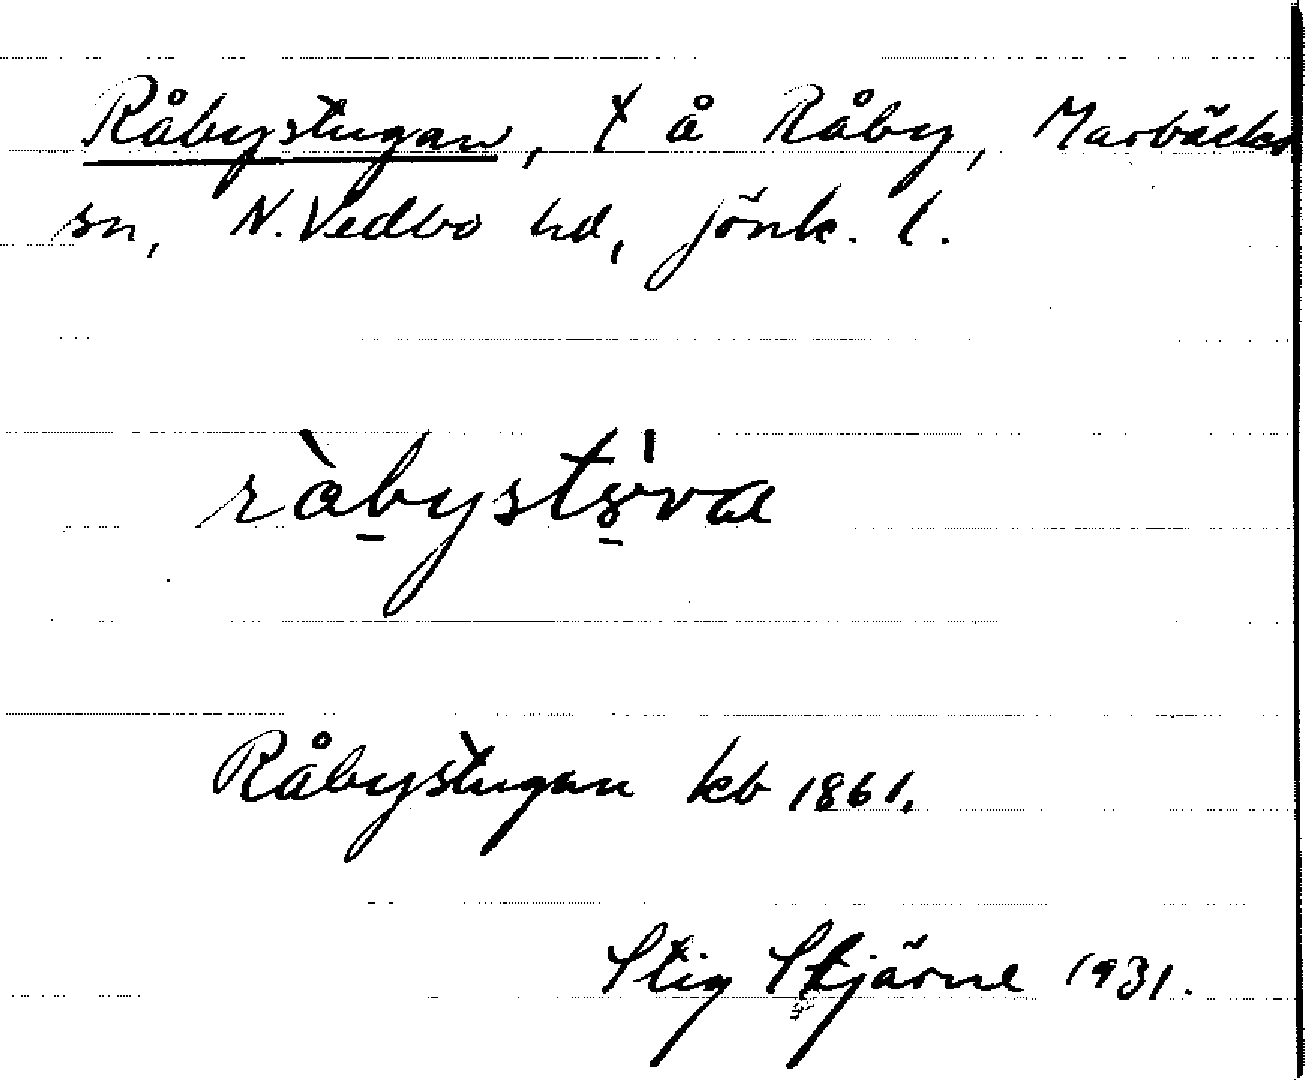 Råbystugan, t å Råby, Marbäcks
sn, N. Vedbo hd, Jönk. l.
ràbysty̍va
Råbystugan kb 1861.
Stig Stjärne 1931.